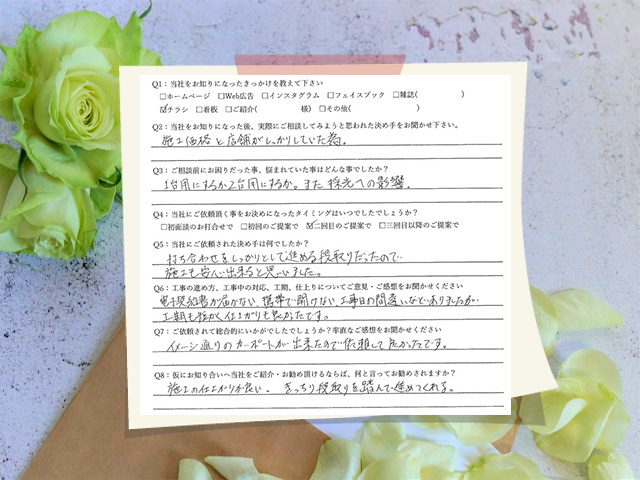 Q1：当社をお知りになったきっかけを教えて下さい
□ホームページ □Web広告 □インスタグラム □フェイスブック □雑誌( )
☑チラシ □看板 □ご紹介( 様) □その他( )
Q2：当社をお知りになった後、実際にご相談してみようと思われた決め手をお聞かせ下さい。
施工価格と店舗がしっかりしていた為。
Q3：ご相談前にお困りだった事、悩まれていた事はどんな事でしたか？
1台用にするか2台用にするか。また採光への影響。
Q4：当社にご依頼頂く事をお決めになったタイミングはいつでしたでしょうか？
□初面談のお打合せで □初回のご提案で ☑二回目のご提案で □三回目以降のご提案で
Q5：当社にご依頼された決め手は何でしたか？
打ち合わせをしっかりとして進める段取りだったので
施工も安心出来ると思いました。
Q6：工事の進め方、工事中の対応、工期、仕上りについてご意見・ご感想をお聞かせください
電子契約書が届かない、携帯で開けない、工事日の間違いなどありましたが、
工期も短かく仕上がりも良かったです。
Q7：ご依頼されて総合的にいかがでしたでしょうか？率直なご感想をお聞かせください
イメージ通りのカーポートが出来たので依頼して良かったです。
Q8：仮にお知り合いへ当社をご紹介・お勧め頂けるならば、何と言ってお勧めされますか？
施工の仕上がりが良い。 きっちり段取りを踏んで進めてくれる。